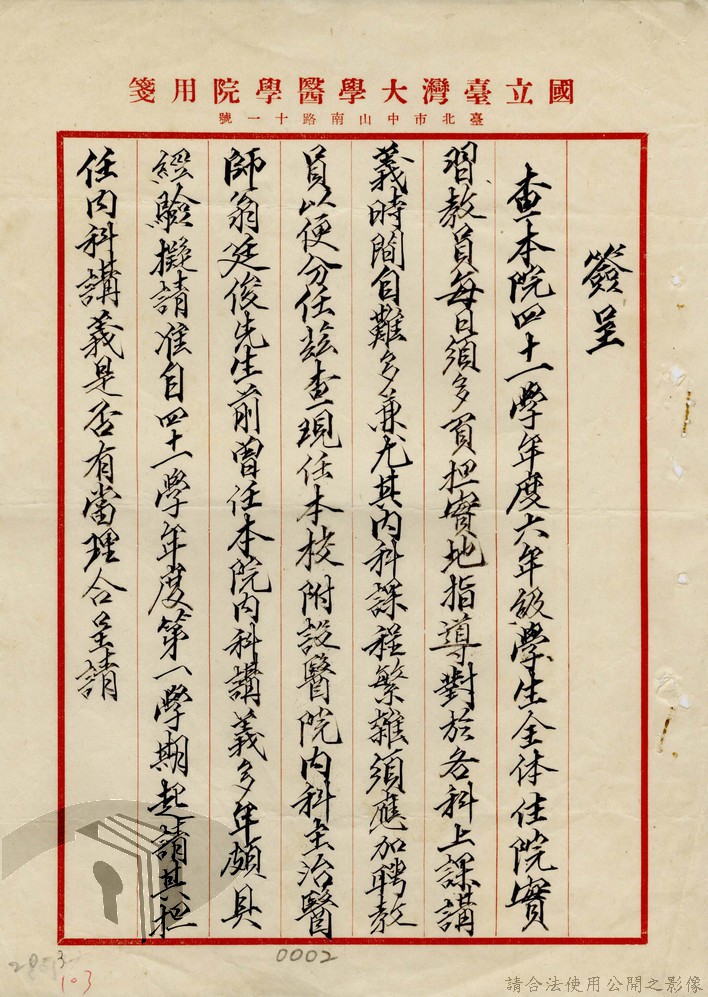 國立臺灣大學醫學院用箋
臺北市中山南路十一號
簽呈
查本院四十一學年度六年級學生全体住院實
習教員每日須多負担實地指導對於各科上課講
義時間自難多兼尤其內科課程繁雜須應加聘教
員以便分任茲查現任本校附設醫院內科主治醫
師翁廷俊先生前曾任本院內科講義多年頗具
經驗擬請准自四十一學年度第一學期起請其担
任內科講義是否有當理合呈請
0002
103
請合法使用公開之影像